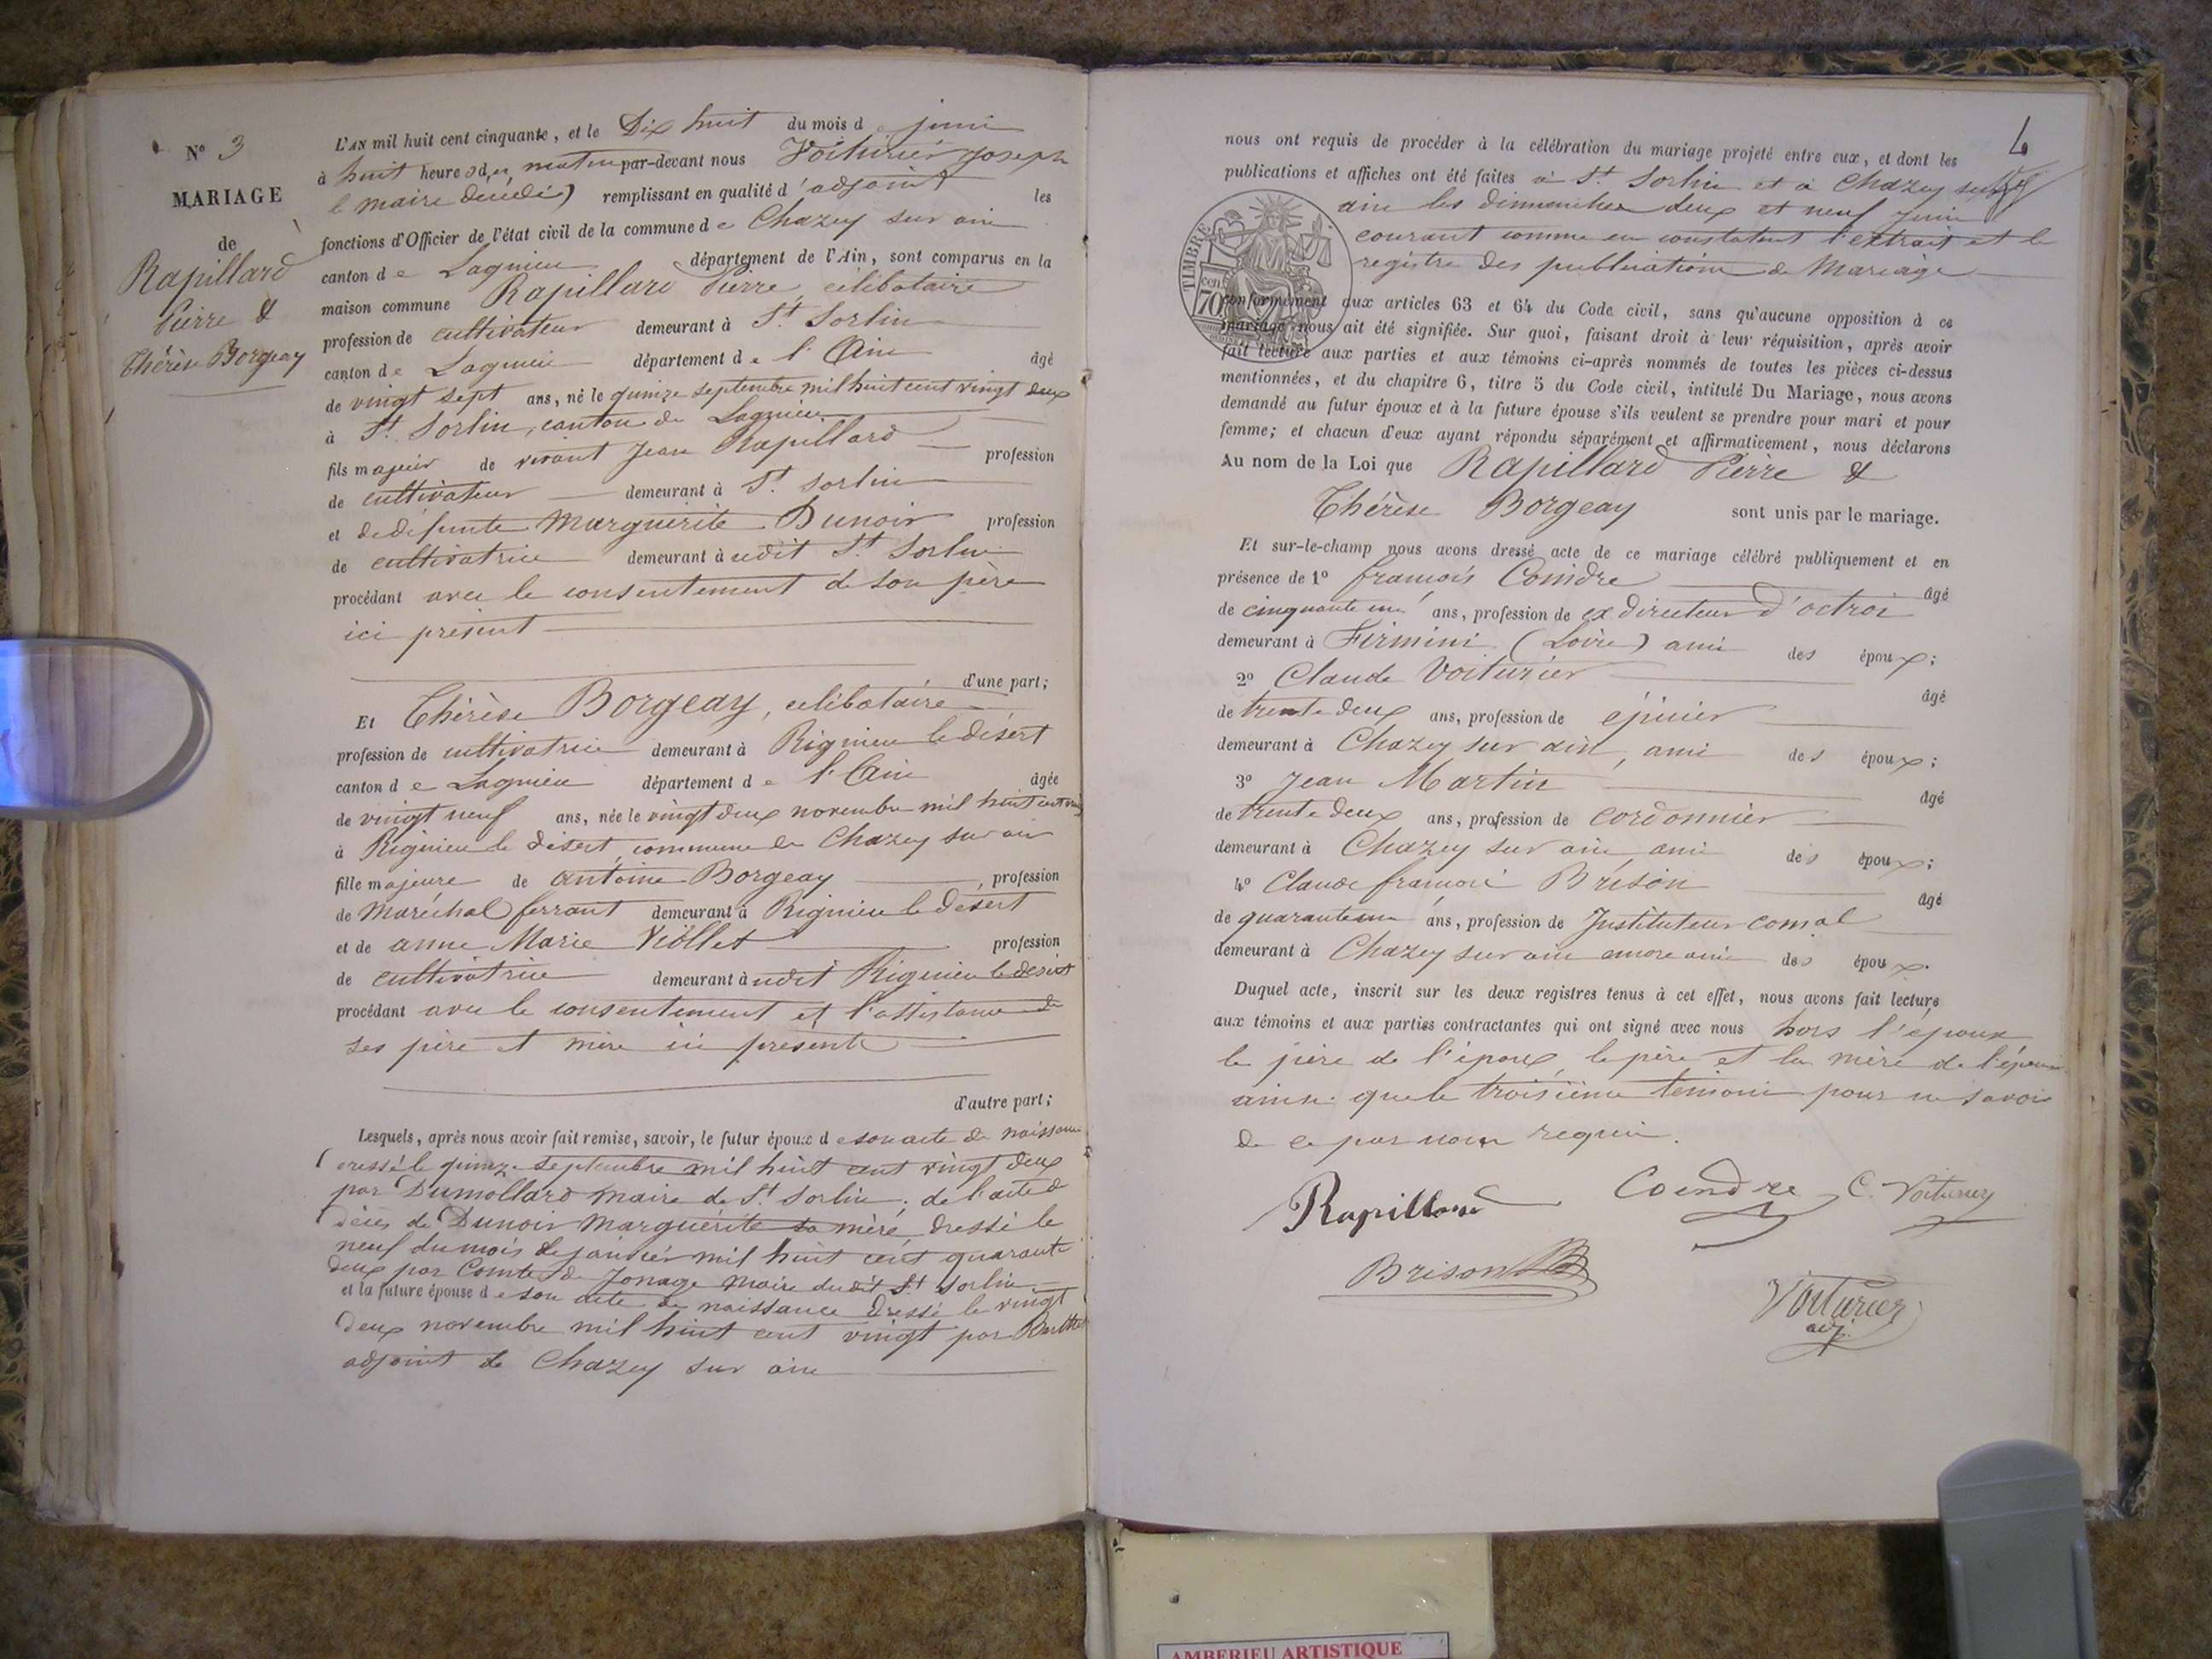 N° 3
MARIAGE
de
Rapillard
Pierre &
Thérèse Borgeay
L'AN mil huit cent cinquante, et le Dix huit du mois de juin
à huit heures du matin par-devant nous Voiturier Joseph
le maire décédé) remplissant en qualité d'adjoint les
fonctions d'Officier de l'état civil de la commune de Chazey sur ain
canton de Lagnieu département de l'Ain, sont comparus en la
maison commune Rapillard Pierre, célibataire
profession de cultivateur demeurant à St Sorlin
canton de Lagnieu département de l'Ain âgé
de vingt sept ans, né le quinze septembre mil huit cent vingt deux
à St. Sorlin, canton de Lagnieu
fils majeur de vivant Jean Rapillard profession
de cultivateur demeurant à St. Sorlin
et de défunte Marguerite Dunoir profession
de cultivatrice demeurant à udit St. Sorlin
procédant avec le consentement de son père
ici présent
d'une part;
Et Thérèse Borgeay, célibataire
profession de cultivatrice demeurant à Rignieu le désert
canton de Lagnieu département de l'Ain âgée
de vingt neuf ans, née le vingt deux novembre mil huit cent vingt
à Rignieu le désert, commune de Chazey sur ain
fille majeure de antoine Borgeay, profession
de Maréchal ferrant demeurant à Rignieu le désert
et de anne Marie Viollet profession
de cultivatrice demeurant à udit Rignieu le désert
procédant avec le consentement et l'assistance de
ses père et mère ici présents
d'autre part;
Lesquels, après nous avoir fait remise, savoir, le futur époux de son acte de naissance
dressé le quinze septembre mil huit cent vingt deux
par Dumollard maire de St Sorlin; de l'acte de
décès de Dunoir Marguérite sa mère, dressé le
neuf du mois de janvier mil huit cent quarante
deux par Comte de Jonage maire dudit St Sorlin
et la future épouse de son acte de naissance dressé le vingt
deux novembre mil huit cent vingt par
adjoint de Chazey sur ain
4
nous ont requis de procéder à la célébration du mariage projeté entre eux, et dont les
publications et affiches ont été faites à St. Sorlin et à Chazey sur
ain les dimanches deux et neuf juin
courant comme en constatent l'extrait et le
registre des publications de Mariage
TIMBRE
70 cent.
conformément aux articles 63 et 64 du Code civil, sans qu'aucune opposition à ce
mariage nous ait été signifiée. Sur quoi, faisant droit à leur réquisition, après avoir
fait lecture aux parties et aux témoins ci-après nommés de toutes les pièces ci-dessus
mentionnées, et du chapitre 6, titre 5 du Code civil, intitulé Du Mariage, nous avons
demandé au futur époux et à la future épouse s'ils veulent se prendre pour mari et pour
femme; et chacun d'eux ayant répondu séparément et affirmativement, nous déclarons
Au nom de la Loi que Rapillard Pierre &
Thérèse Borgeay sont unis par le mariage.
Et sur-le-champ nous avons dressé acte de ce mariage célébré publiquement et en
présence de 1° françois Coindre âgé
de cinquante un ans, profession de ex directeur d'octroi
demeurant à Firmini (Loire) ami des époux;
2° Claude Voiturier âgé
de trente deux ans, profession de épicier
demeurant à Chazey sur ain, ami des époux;
3° Jean Martin âgé
de trente deux ans, profession de cordonnier
demeurant à Chazey sur ain, ami des époux;
4° Claude françois Brison âgé
de quarante un ans, profession de Instituteur comal
demeurant à Chazey sur ain encore ami des époux.
Duquel acte, inscrit sur les deux registres tenus à cet effet, nous avons fait lecture
aux témoins et aux parties contractantes qui ont signé avec nous hors l'épouse
le père de l'époux, le père et la mère de l'épouse
ainsi que le troisième témoin pour ne savoir
de ce par nous requis.
Rapillard Coindre C. Voiturier
Brison
Voiturier
adj.
AMBERIEU ARTISTIQUE